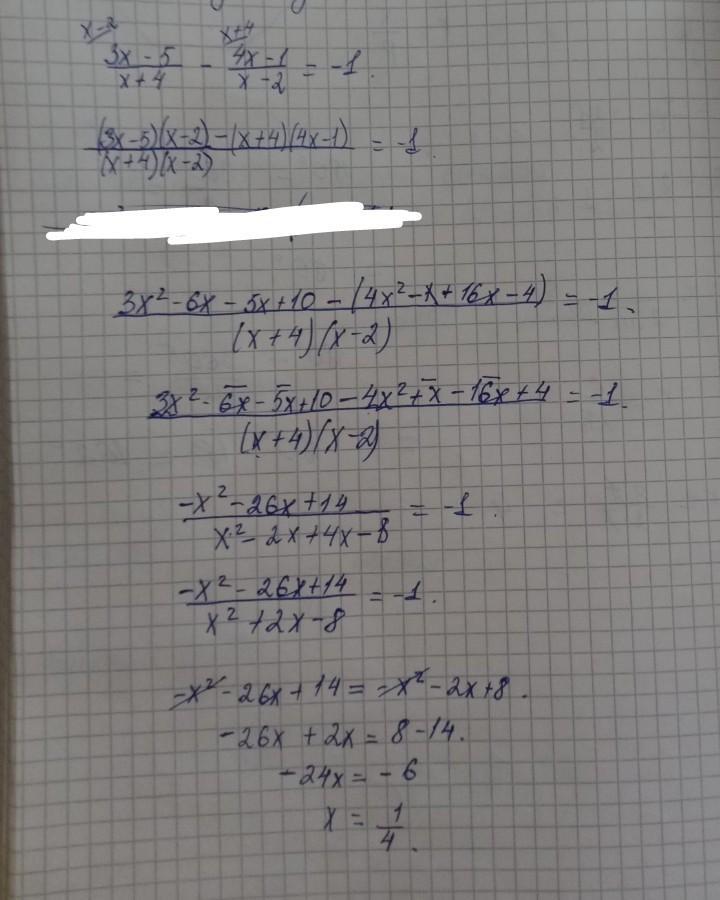 x-2 x+4
(3x-5)/(x+4) - (4x-1)/(x-2) = -1.
((3x-5)(x-2)-(x+4)(4x-1))/((x+4)(x-2)) = -1.
(3x²-6x-5x+10-(4x²-x+16x-4))/((x+4)(x-2)) = -1.
(3x²-6x-5x+10-4x²+x-16x+4)/((x+4)(x-2)) = -1.
(-x²-26x+14)/(x²-2x+4x-8) = -1.
(-x²-26x+14)/(x²+2x-8) = -1.
-x²-26x+14 = -x²-2x+8.
-26x+2x = 8-14.
-24x = -6
x = 1/4.